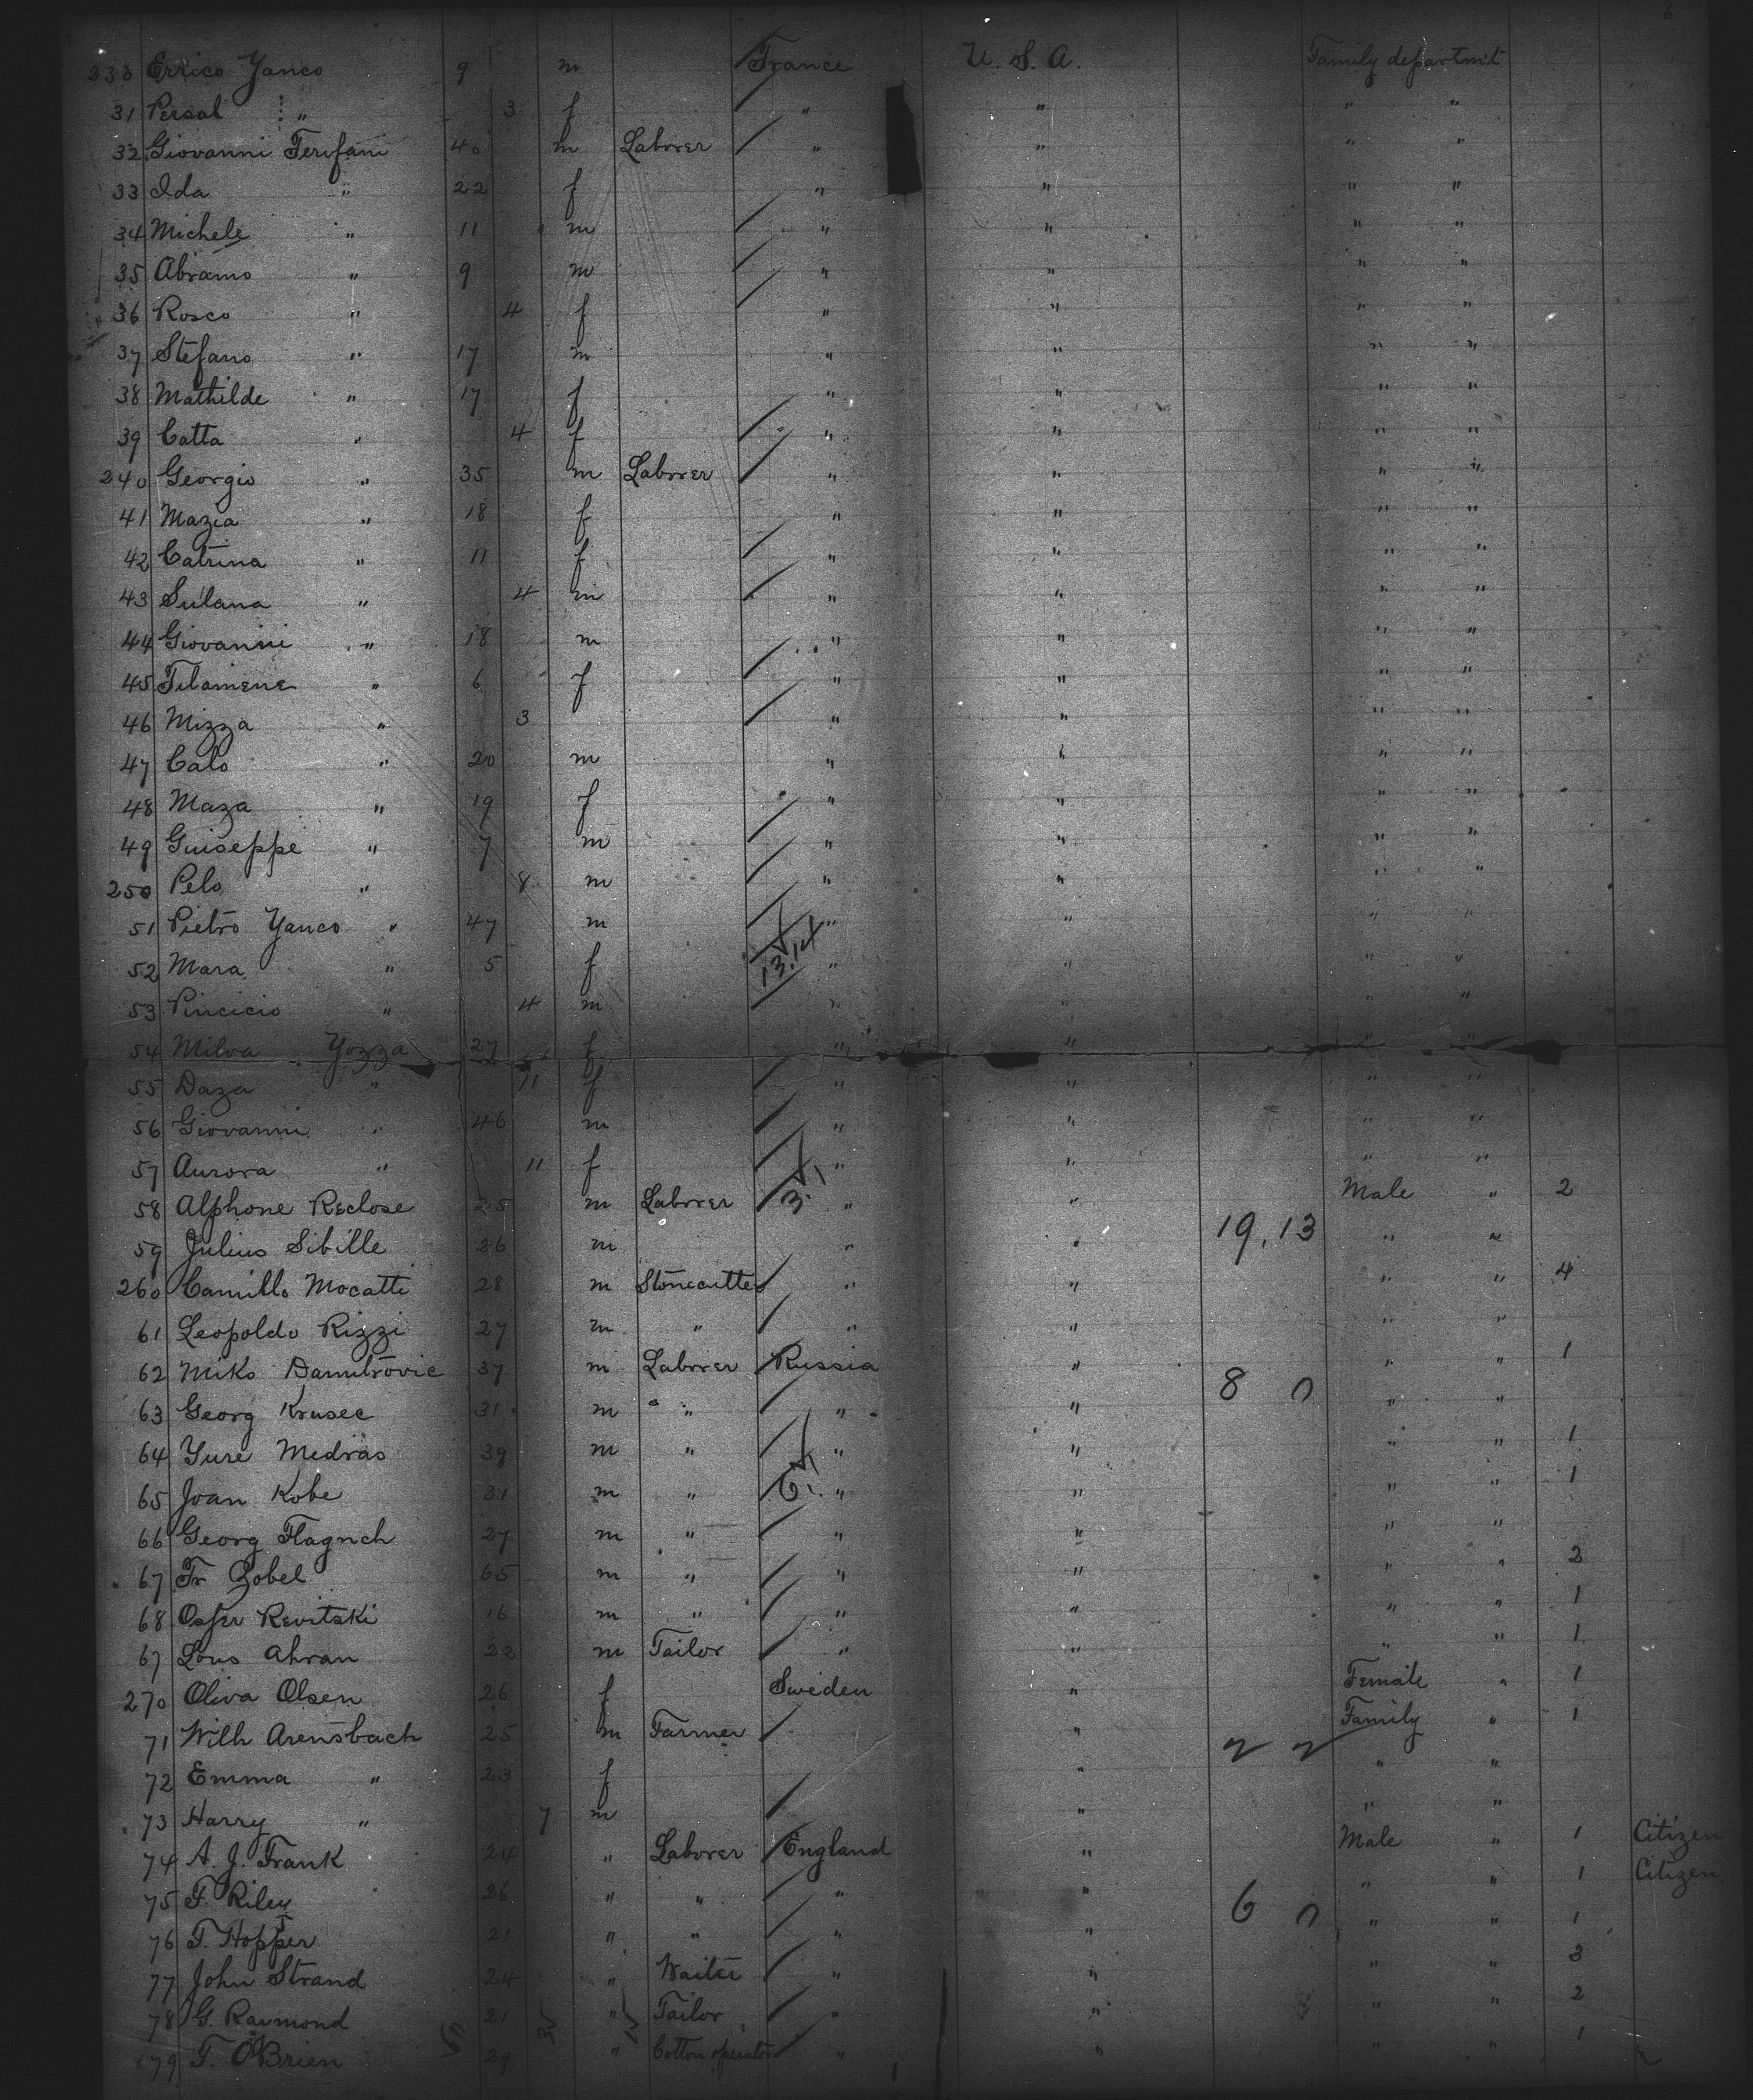 6
230 Errico Yanco 9 m France U. S. A. Family departmt
31 Persal " 3 f " " " "
32 Giovanni Terifani 40 m Laborer " " " "
33 Ida " 22 f " " " "
34 Michele " 11 m " " " "
35 Abramo " 9 m " " " "
36 Rosco " 4 f " " " "
37 Stefano " 17 m " " " "
38 Mathilde " 17 f " " " "
39 Catta " 4 f " " " "
240 Georgio " 35 m Laborer " " " "
41 Mazia " 18 f " " " "
42 Catrina " 11 f " " " "
43 Sulana " 4 m " " " "
44 Giovanni " 18 m " " " "
45 Filamene " 6 f " " " "
46 Mizza " 3 " " " "
47 Calo " 20 m " " " "
48 Maza " 19 f " " " "
49 Guiseppe " 7 m " " " "
250 Pelo " 8 m " " " "
51 Pietro Yanco " 47 m " " " "
52 Mara " 5 f 13.14 " " " "
53 Pincicio " 4 m " " " "
54 Milva Yozza 27 f " " " "
55 Daza " 11 f " " " "
56 Giovanni " 46 m " " " "
57 Aurora " 11 f " " " "
58 Alphone Reclose 25 m Laborer 3.1 " " Male " 2
59 Julius Sibille 26 m " " 19.13 " "
260 Camillo Mocatti 28 m Stonecutter " " " " 4
61 Leopoldo Rizzi 27 m " " " " "
62 Miko Damitrovic 37 m Laborer Russia " " " 1
63 Georg Krusec 31 m " " " 8 0 " "
64 Yure Medras 39 m " " " " " 1
65 Joan Kobe 31 m " 6. " " " " 1
66 Georg Flagnch 27 m " " " " "
67 Fr Zobel 65 m " " " " " 2
68 Osser Revitski 16 m " " " " " 1
67 Lous Ahran 22 m Tailor " " " " 1
270 Oliva Olsen 26 f Sweden " Female " 1
71 Wilh Arensbach 25 m Farmer " Family " 1
72 Emma " 23 f " 2 2 " "
73 Harry " 7 m " " "
74 A. J. Frank 24 " Laborer England " Male " 1 Citizen
75 F. Riley 26 " " " " " " 1 Citizen
76 T. Hopper 21 " " " " 6 0 " " 1
77 John Strand 24 " Waiter " " " " 3
78 G. Raymond 21 " Tailor " " " " 2
79 T. O'Brien 29 " Cotton operator " " " " 1